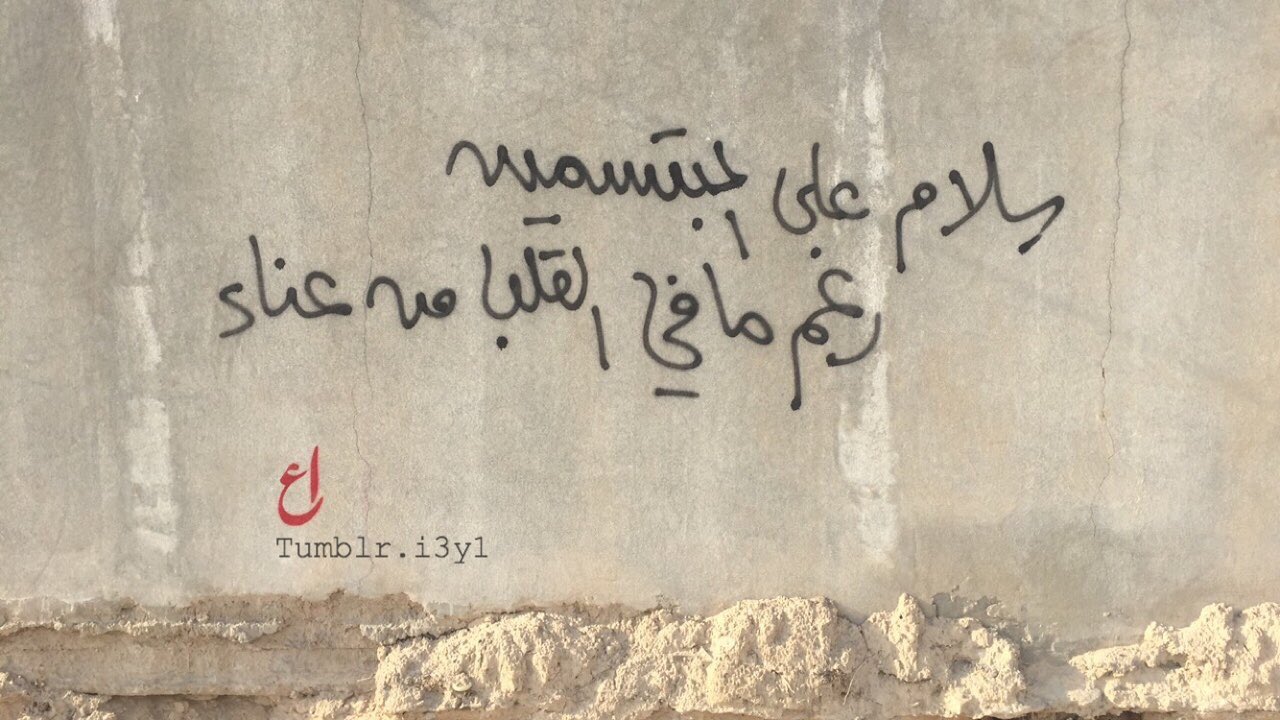 سلام على المبتسمين
رغم ما في القلب من عناء
اع
Tumblr.i3yl